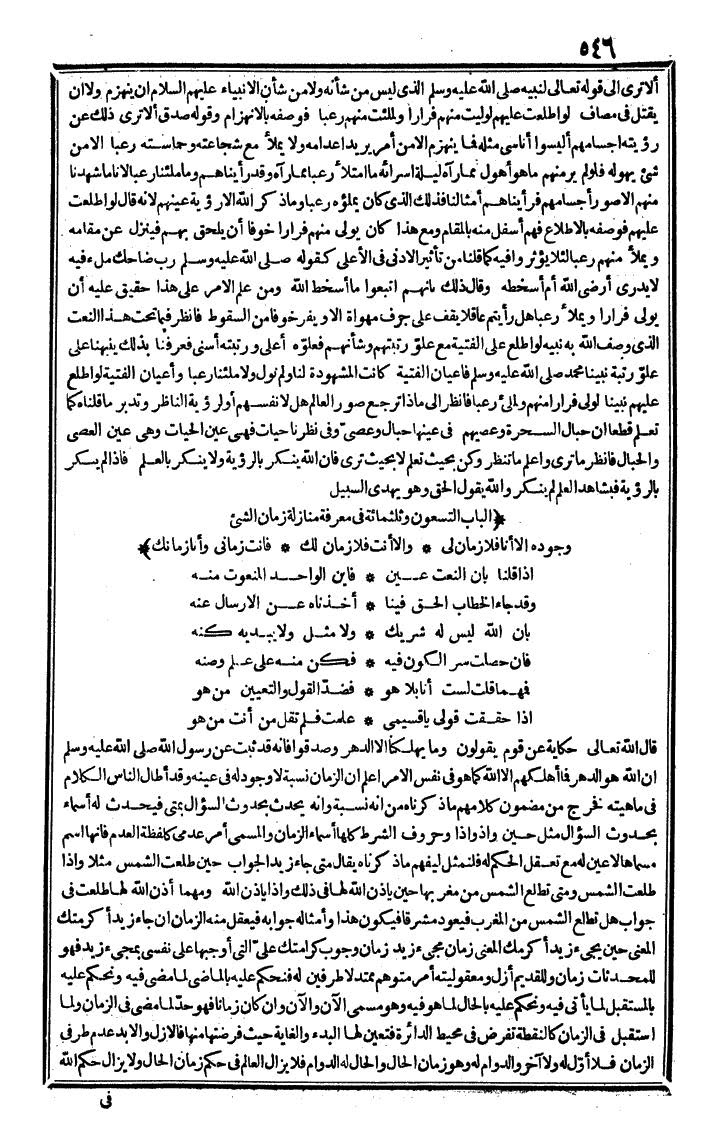 ٥٤٦
ألا ترى الى قوله تعالى لنبيه صلى الله عليه وسلم الذى ليس من شأنه ولا من شأن الانبياء عليهم السلام ان ينهزم ولا ان
يقتل فى مصاف لو اطلعت عليهم لوليت منهم فرارا ولملئت منهم رعبا فوصفه بالانهزام وقوله صدق ألا ترى ذلك عن
رؤيته اجسامهم أليسوا أناسى مثله فما ينهزم الا من أمر يريد اعدامه ولا يملأ مع شجاعته وحماسته رعبا الا من
شئ يهوله فلو لم ير منهم ما هو أهول مما رآه ليلة اسرائه ما امتلأ رعبا مما رآه وقد رأيناهم وما ملئنا رعبا لانا ما شهدنا
منهم الا صور أجسامهم فرأيناهم أمثالنا فذلك الذى كان يملؤه رعبا وما ذكر الله الا رؤية عينهم لانه قال لو اطلعت
عليهم فوصفه بالاطلاع فهم أسفل منه بالمقام ومع هذا كان يولى منهم فرارا خوفا أن يلحق بهم فينزل عن مقامه
ويملأ منهم رعبا لئلا يؤثروا فيه كما قلنا من تأثير الادنى فى الأعلى كقوله صلى الله عليه وسلم رب ضاحك ملء فيه
لا يدرى أرضى الله أم أسخطه وقال ذلك بانهم اتبعوا ما أسخط الله ومن علم الامر على هذا حقيق عليه أن
يولى فرارا ويملأ رعبا هل رأيتم عاقلا يقف على جرف مهواة الا ويفر خوفا من السقوط فانظر فيما تحت هذا النعت
الذى وصف الله به نبيه لو اطلع على الفتية مع علو رتبتهم وشأنهم فعلوه أعلى ورتبته أسنى فعرفنا بذلك ينبهنا على
علو رتبة نبينا محمد صلى الله عليه وسلم فاعيان الفتية كانت المشهودة لنا ولم نول ولا ملئنا رعبا وأعيان الفتية لو اطلع
عليهم نبينا لولى فرارا منهم ولملئ رعبا فانظر الى ماذا ترجع صور العالم هل لانفسهم أو لرؤية الناظر وتدبر ما قلناه كما
تعلم قطعا ان حبال السحرة وعصيهم فى عينها حبال وعصىّ وفى نظرنا حيات فهى عين الحيات وهى عين العصى
والحبال فانظر ما ترى واعلم ما تنظر وكن بحيث تعلم لا بحيث ترى فان الله ينكر بالرؤية ولا ينكر بالعلم فاذا لم ينكر
بالرؤية فبشاهد العلم لم ينكر والله يقول الحق وهو يهدى السبيل
﴿الباب التسعون وثلثمائة فى معرفة منازلة زمان الشئ
وجوده الا أنا فلا زمان لى * والا أنت فلا زمان لك * فانت زمانى وأنا زمانك﴾
اذا قلنا بان النعت عين * فاين الواحد المنعوت منه
وقد جاء الخطاب الحق فينا * أخذناه عن الارسال عنه
بان الله ليس له شريك * ولا مثل ولا يبديه كنه
فان حصلت سر الكون فيه * فكن منه على علم وصنه
فهما قلت لست أنا بلا هو * فضدّ القول والتعيين من هو
اذا حققت قولى يا قسيمى * علمت فلم تقل من أنت من هو
قال الله تعالى حكاية عن قوم يقولون وما يهلكنا الا الدهر وصدقوا فانه قد ثبت عن رسول الله صلى الله عليه وسلم
ان الله هو الدهر فما أهلكهم الا الله كما هو فى نفس الامر اعلم ان الزمان نسبة لا وجود له فى عينه وقد أطال الناس الكلام
فى ماهيته فخرج من مضمون كلامهم ما ذكرناه من انه نسبة وانه يحدث بحدوث السؤال بمتى فيحدث له أسماء
بحدوث السؤال مثل حين واذ واذا وحروف الشرط كلها أسماء الزمان والمسمى أمر عدمى كلفظة العدم فانها اسم
مسماها لا عين له مع تعقل الحكم له فلنمثل ليفهم ما ذكرناه يقال متى جاء زيد الجواب حين طلعت الشمس مثلا واذا
طلعت الشمس ومتى تطلع الشمس من مغربها حين ياذن الله لها فى ذلك واذا ياذن الله ومهما أذن الله لها طلعت فى
جواب هل تطلع الشمس من المغرب فيعود مشرقا فيكون هذا وأمثاله جوابه فيعقل منه الزمان ان جاء زيد أكرمتك
المعنى حين يجىء زيد أكرمك المعنى زمان مجىء زيد زمان وجوب كرامتك علىّ التى أوجبها على نفسى بمجىء زيد فهو
للمحدثات زمان وللقديم أزل ومعقوليته أمر متوهم ممتد لا طرفين له فنحكم عليه بالماضى لما مضى فيه ونحكم عليه
بالمستقبل لما يأتى فيه ونحكم عليه بالحال لما هو فيه وهو مسمى الآن والآن وان كان زمانا فهو حدّ لما مضى فى الزمان ولما
استقبل فى الزمان كالنقطة تفرض فى محيط الدائرة فتعين لها البدء والغاية حيث فرضتها منها فالازل والابد عدم طرفى
الزمان فلا أوّل له ولا آخر والدوام له وهو زمان الحال والحال له الدوام فلا يزال العالم فى حكم زمان الحال ولا يزال حكم الله
فى